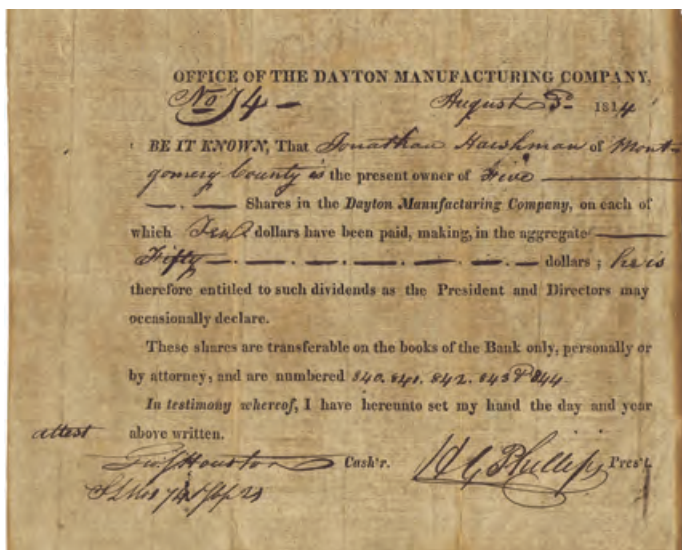 OFFICE OF THE DAYTON MANUFACTURING COMPANY,
No 74 — August 3d 1814
BE IT KNOWN, That Jonathan Harshman of Mont-
gomery County is the present owner of Five
Shares in the Dayton Manufacturing Company, on each of
which Ten dollars have been paid, making, in the aggregate
Fifty dollars; he is
therefore entitled to such dividends as the President and Directors may
occasionally declare.
These shares are transferable on the books of the Bank only, personally or
by attorney, and are numbered 840. 841. 842. 843 & 844
In testimony whereof, I have hereunto set my hand the day and year
attest above written.
Houston Cash'r. H G Phillips Pres't.